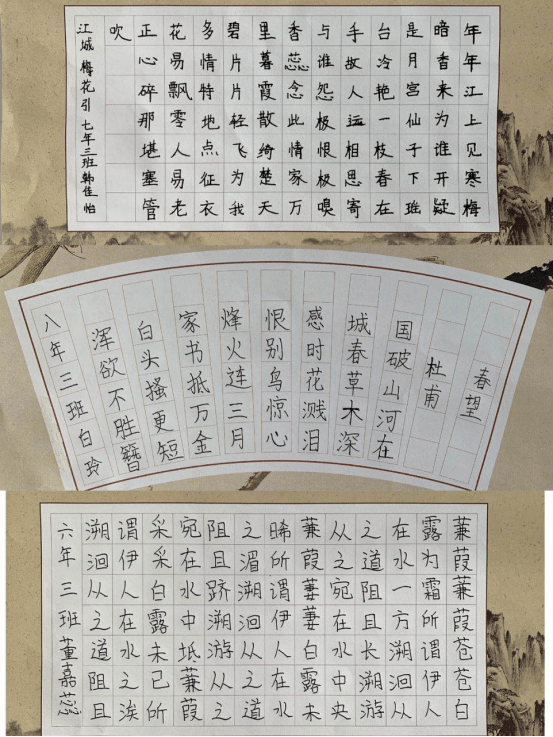 年年江上见寒梅
暗香来为谁开疑
是月宫仙子下瑶
台冷艳一枝春在
手故人远相思寄
与谁怨极恨极嗅
香蕊念此情家万
里暮霞散绮楚天
碧片片轻飞为我
多情特地点征衣
花易飘零人易老
正心碎那堪塞管
吹
江城 梅花引 七年三班韩佳怡
春望
杜甫
国破山河在
城春草木深
感时花溅泪
恨别鸟惊心
烽火连三月
家书抵万金
白头搔更短
浑欲不胜簪
八年三班白玲
蒹葭蒹葭苍苍白
露为霜所谓伊人
在水一方溯洄从
之道阻且长溯游
从之宛在水中央
蒹葭萋萋白露未
晞所谓伊人在水
之湄溯洄从之道
阻且跻溯游从之
宛在水中坻蒹葭
采采白露未已所
谓伊人在水之涘
溯洄从之道阻且
六年三班董嘉蕊